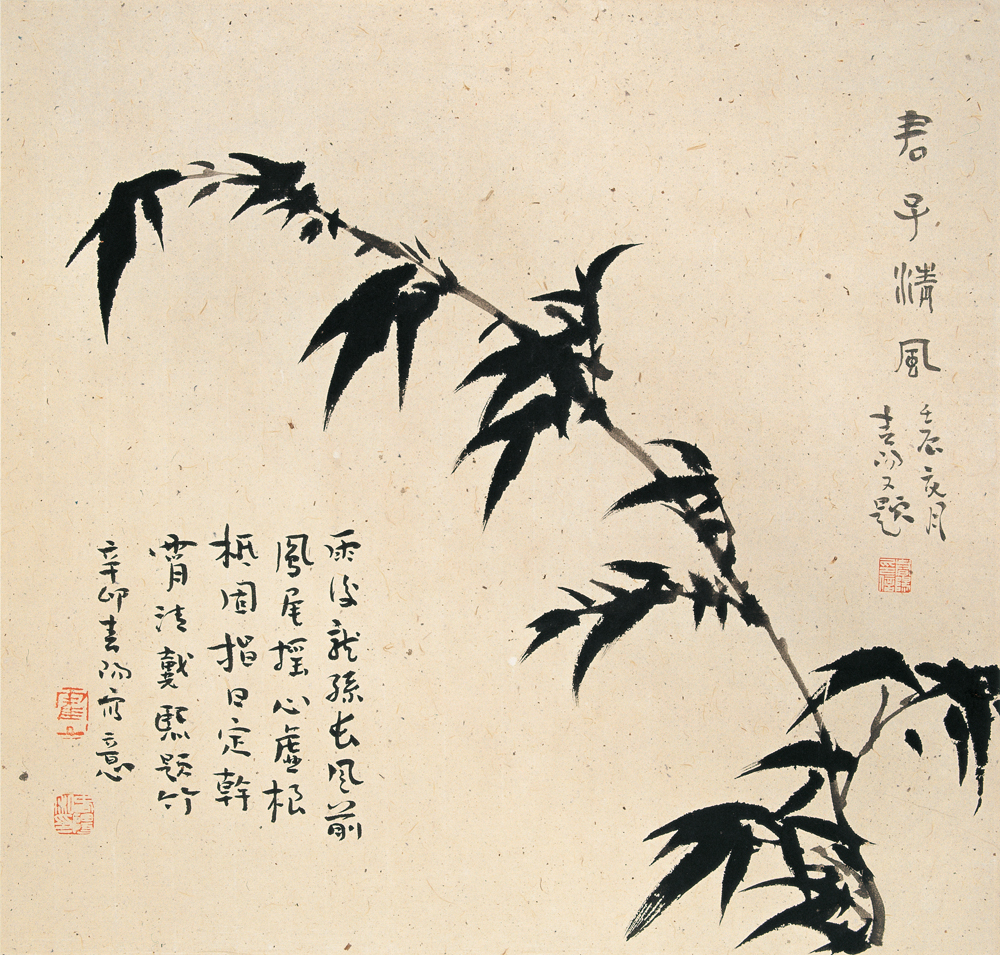 君子清風
壬辰亥月
春陽又題
雨後龍孫長風前
鳳尾摇心虛根
柢固指日定幹
霄清戴熙題竹
辛卯春陽寫意